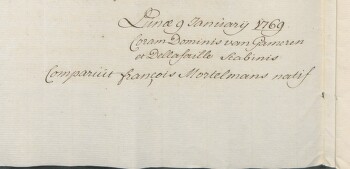 Lunæ 9 January 1769
Coram Dominis van Gameren
et Dellafaille Scabinis
Comparuit françois Mortelmans natif